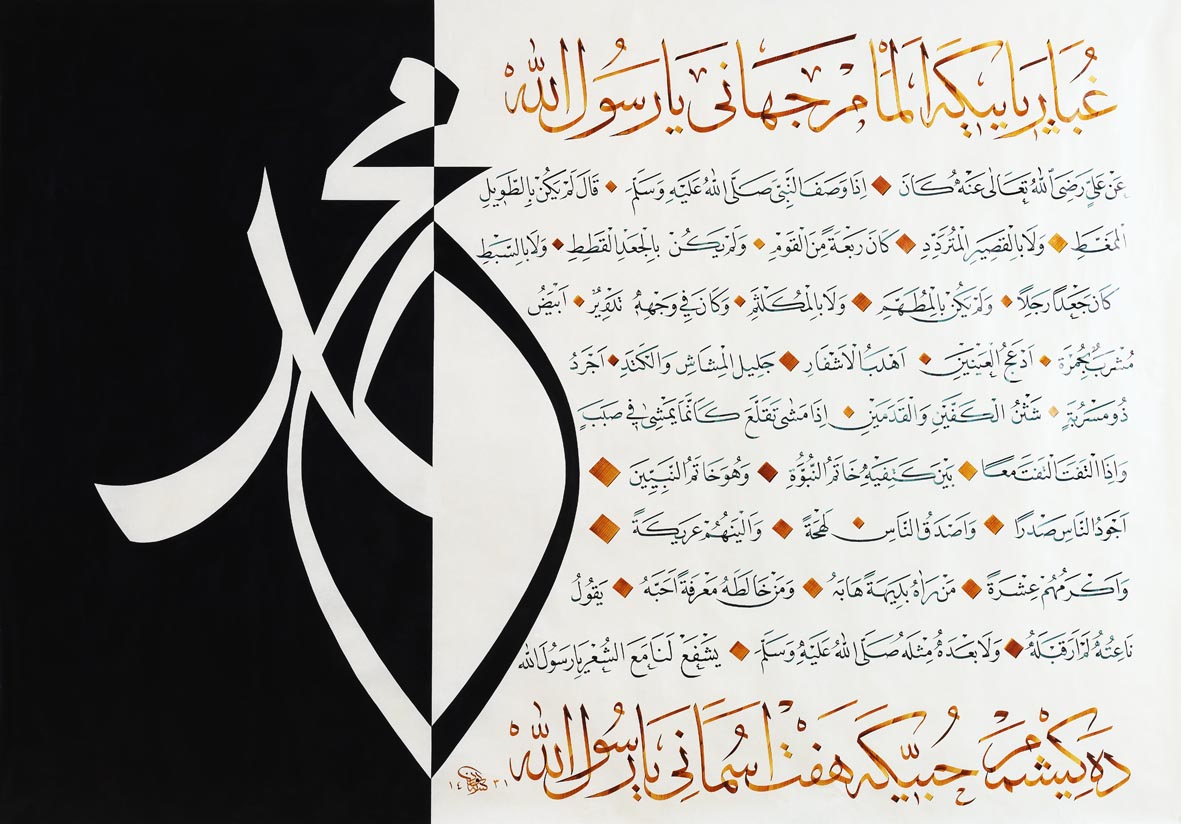 محمد
غُبَارِ رَابِيكَه الَمَام رَجَهَانِي يَارَسُولَ اللّٰه
عَنْ عَلِيٍّ رَضِىَ اللّٰهُ تَعَالٰى عَنْهُ كَانَ اِذَا وَصَفَ النَّبِىَّ صَلَّى اللّٰهُ عَلَيْهِ وَسَلَّمَ قَالَ لَمْ يَكُنْ بِالطَّوِيلِ
الْمُمَغَّطِ وَلَا بِالْقَصِيرِ الْمُتَرَدِّدِ كَانَ رَبْعَةً مِنَ الْقَوْمِ وَلَمْ يَكُنْ بِالْجَعْدِ الْقَطَطِ وَلَا بِالسَّبِطِ
كَانَ جَعْدًا رَجِلًا وَلَمْ يَكُنْ بِالْمُطَهَّمِ وَلَا بِالْمُكَلْثَمِ وَكَانَ فِى وَجْهِهِ تَدْوِيرٌ اَبْيَضُ
مُشْرَبٌ بِحُمْرَةٍ اَدْعَجُ الْعَيْنَيْنِ اَهْدَبُ الْاَشْفَارِ جَلِيلُ الْمُشَاشِ وَالْكَتَدِ اَجْرَدُ
ذُو مَسْرُبَةٍ شَثْنُ الْكَفَّيْنِ وَالْقَدَمَيْنِ اِذَا مَشٰى تَقَلَّعَ كَاَنَّمَا يَمْشِى فِى صَبَبٍ
وَاِذَا الْتَفَتَ الْتَفَتَ مَعًا بَيْنَ كَتِفَيْهِ خَاتَمُ النُّبُوَّةِ وَهُوَ خَاتَمُ النَّبِيِّينَ
اَجْوَدُ النَّاسِ صَدْرًا وَاَصْدَقُ النَّاسِ لَهْجَةً وَاَلْيَنُهُمْ عَرِيكَةً
وَاَكْرَمُهُمْ عِشْرَةً مَنْ رَاٰهُ بَدِيهَةً هَابَهُ وَمَنْ خَالَطَهُ مَعْرِفَةً اَحَبَّهُ يَقُولُ
نَاعِتُهُ لَمْ اَرَ قَبْلَهُ وَلَا بَعْدَهُ مِثْلَهُ صَلَّى اللّٰهُ عَلَيْهِ وَسَلَّمَ يَشْفَعْ لَنَا مَعَ الشُّعْرِ يَارَسُولَ اللّٰه
دَه كِيشمَر حُبِّيكَه هَفْت اَسْمَانِي يَارَسُولَ اللّٰه
١٤٣١